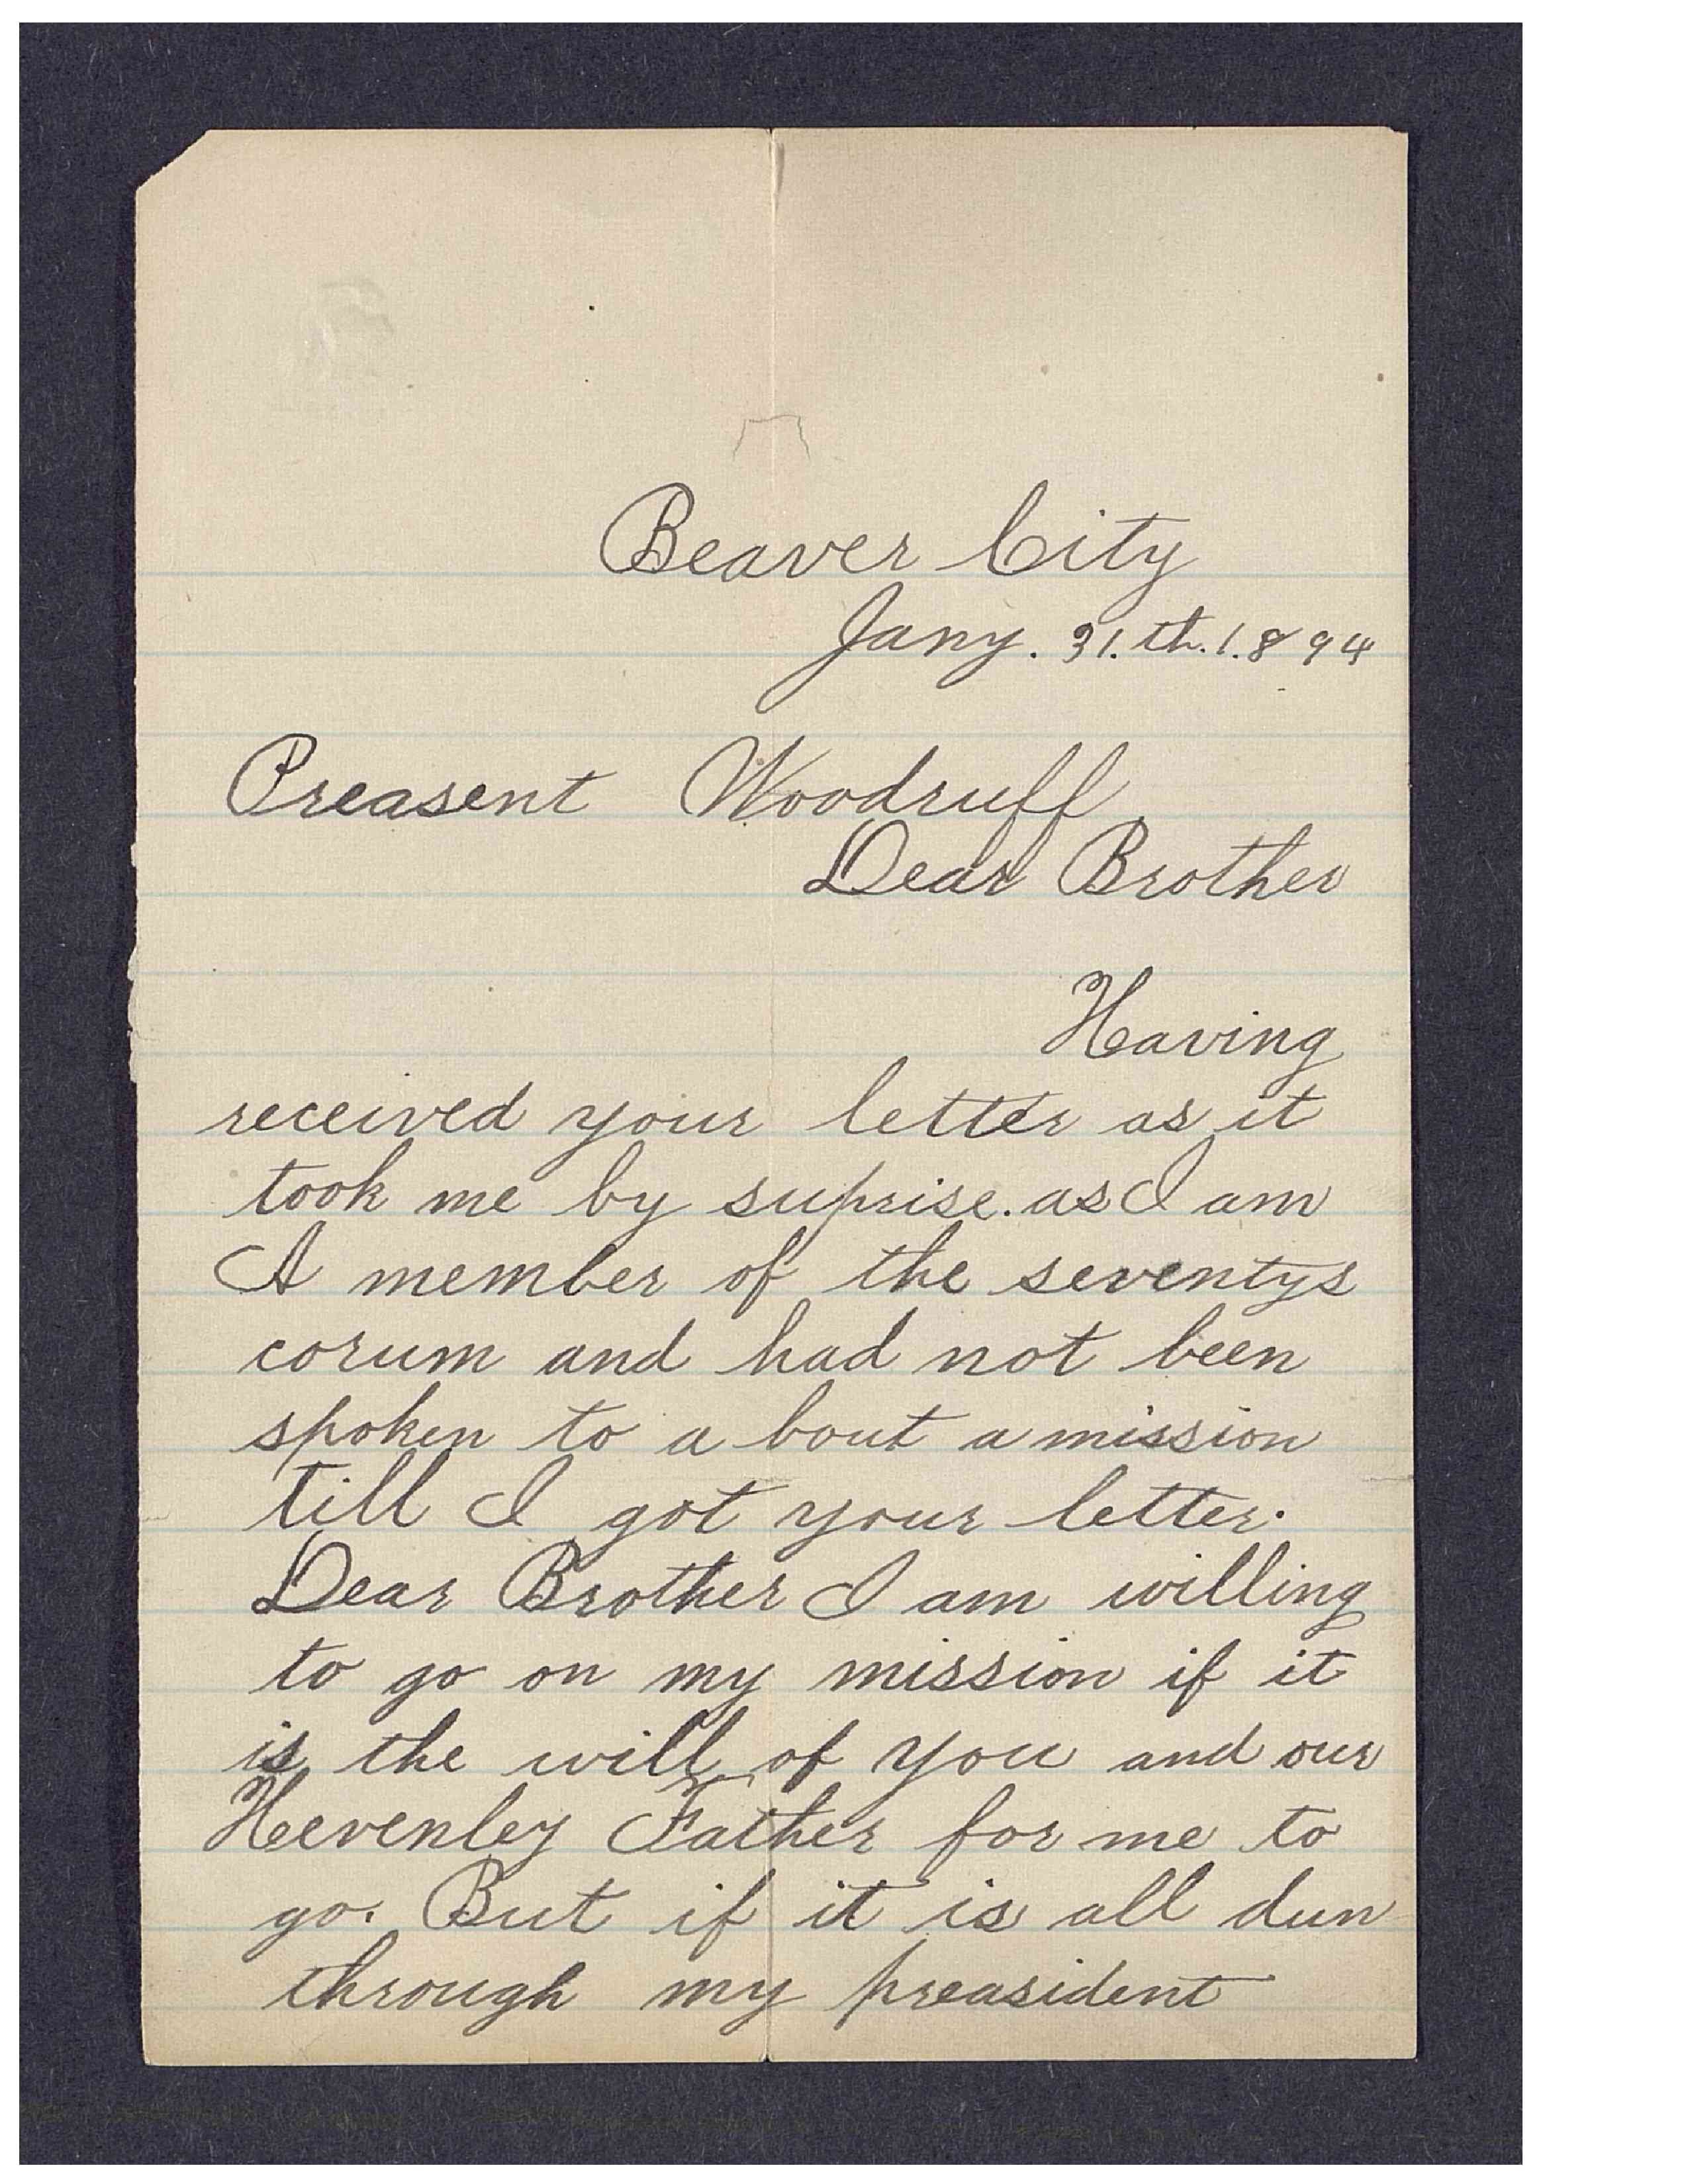 Beaver City
Jany. 31.th.1.894
Preasent Woodruff
Dear Brother
Having
received your letter as it
took me by suprise. as I am
A member of the seventys
corum and had not been
spoken to a bout a mission
till I got your letter.
Dear Brother I am willing
to go on my mission if it
is the will of you and our
Heevenley Father for me to
go. But if it is all dun
through my preasident